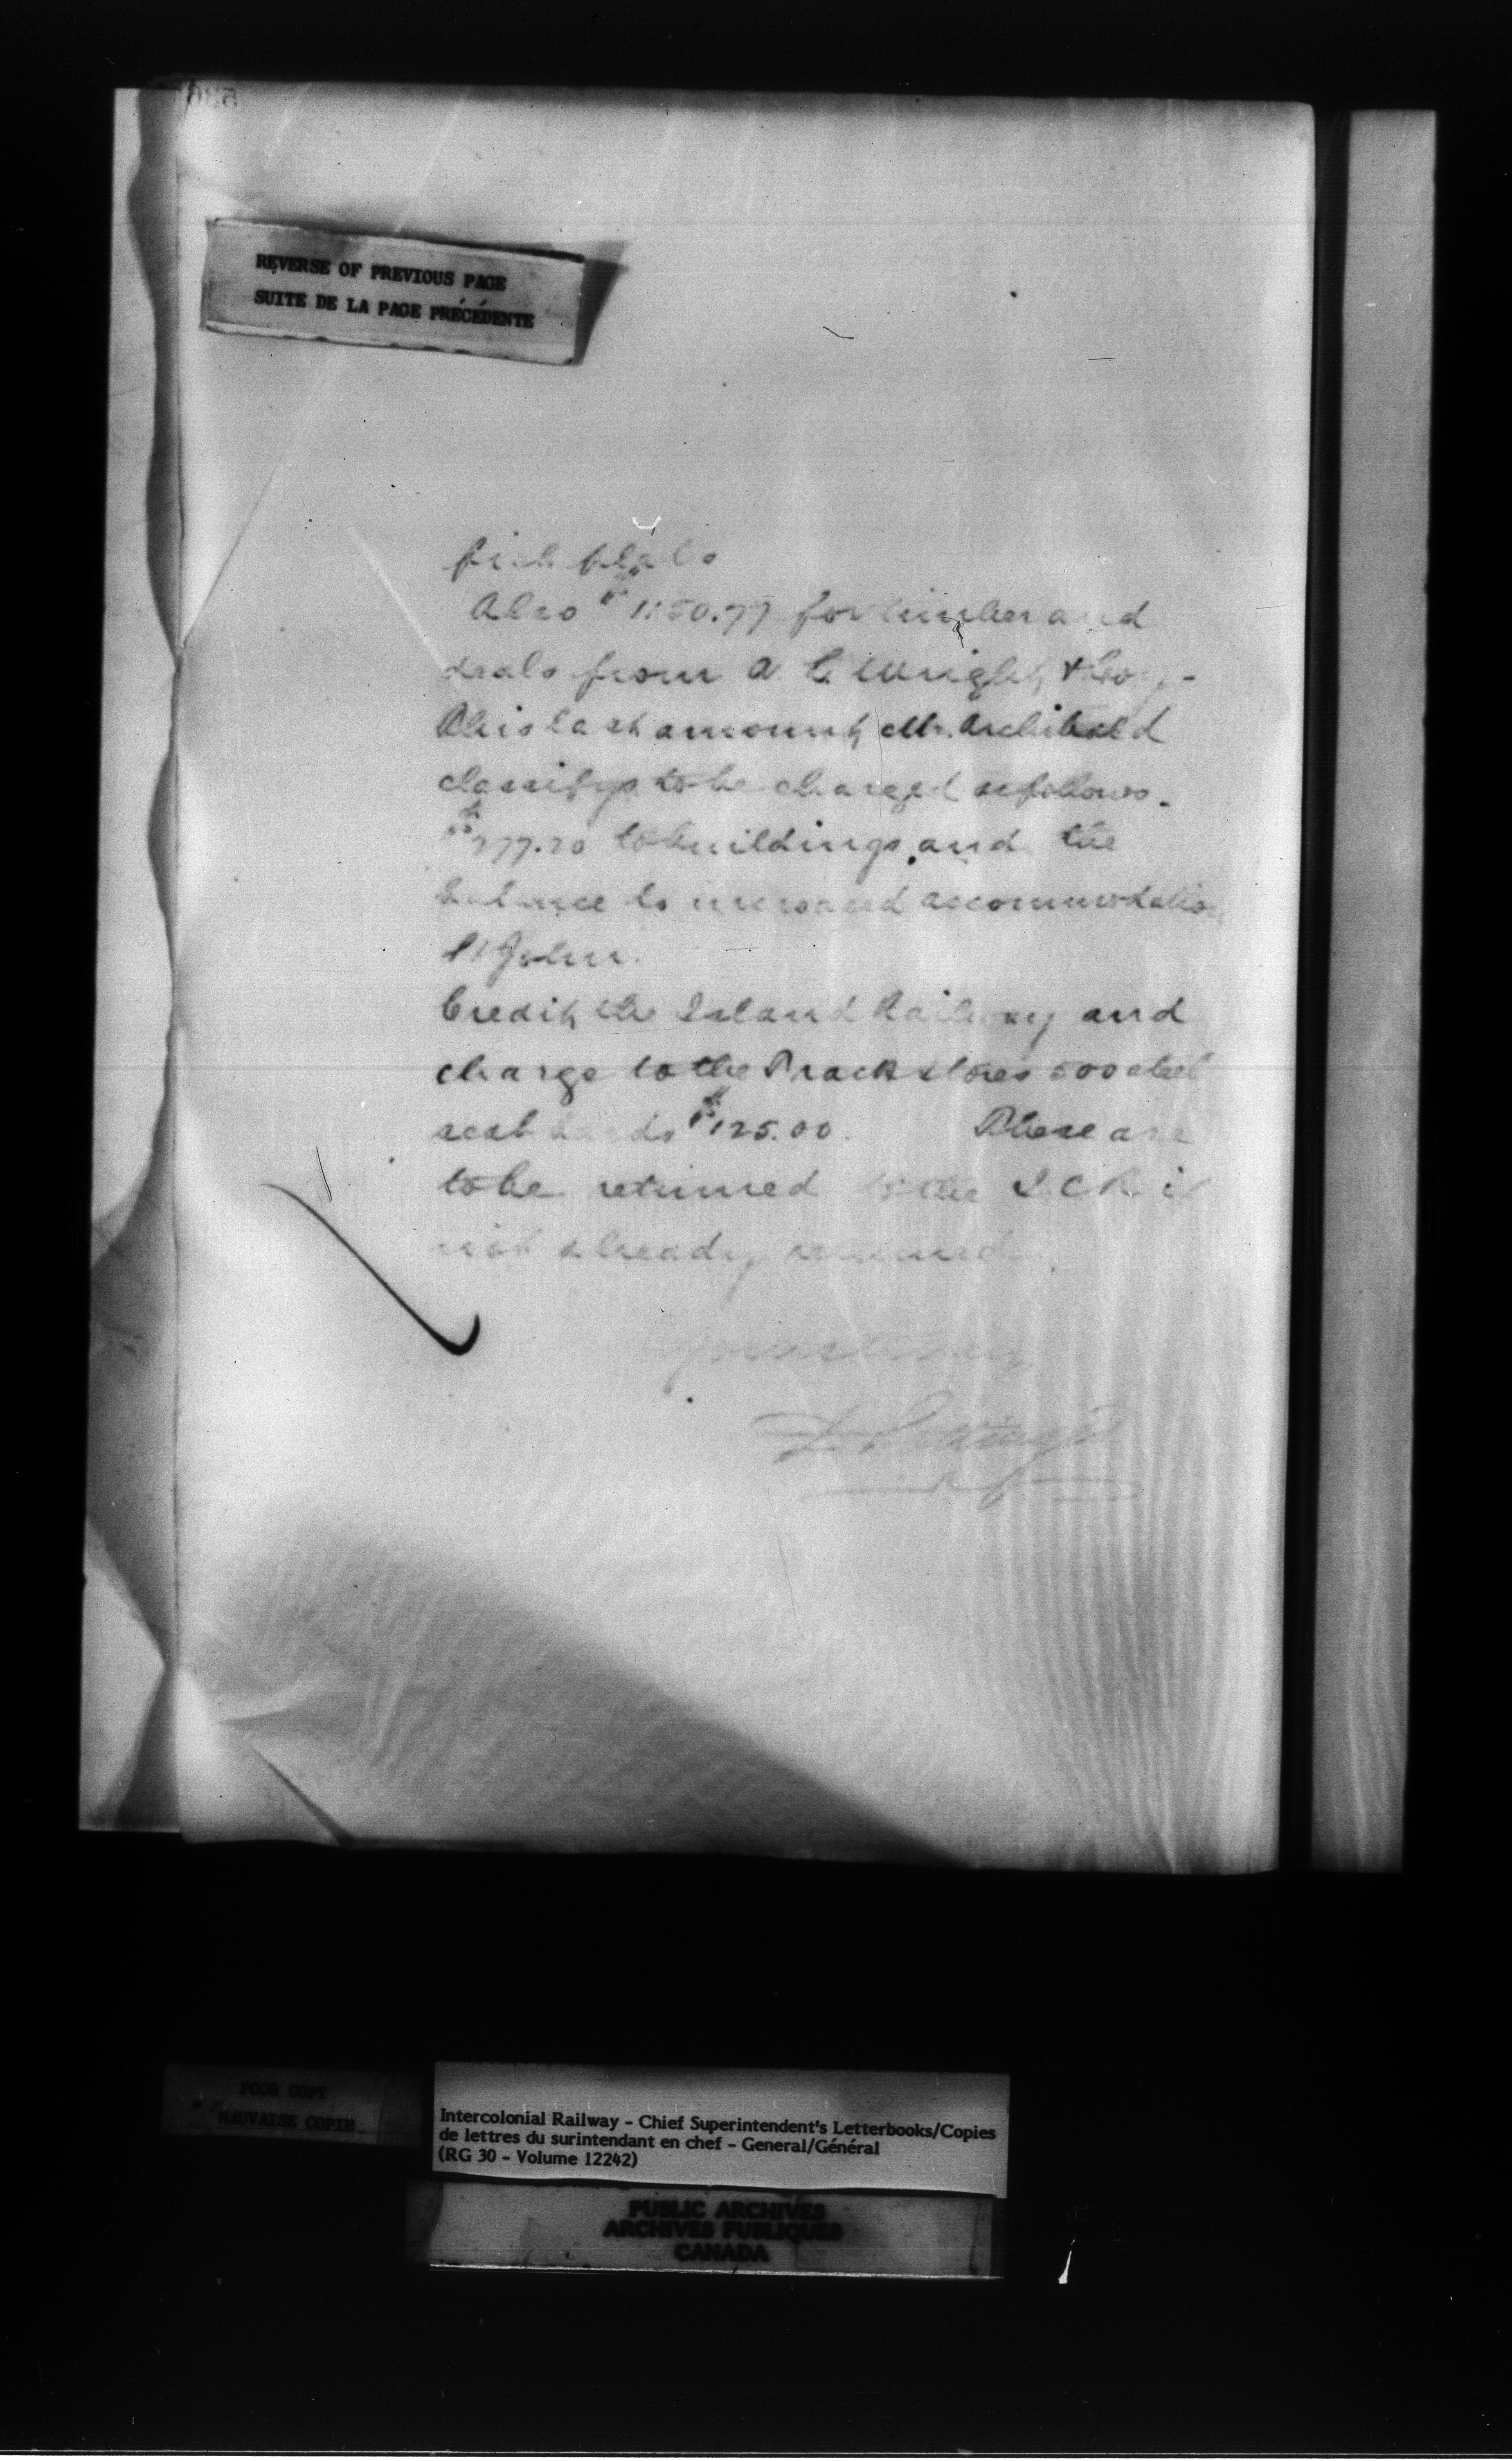 REVERSE OF PREVIOUS PAGE
SUITE DE LA PAGE PRÉCÉDENTE
fish plates
Also $1150.77 for timber and
deals from A C Wright & Co.-
This last amount Mr. Archibald
classifys to be charged as follows.
$277.20 to buildings, and the
balance to increased accommodation
St John.
Credit the Island Railway and
charge to the Track stores 500 steel
seat $125.00. These are
to be returned to the I.C.R. if
not already returned.
Yours truly
D. Pottinger
POOR COPY
MAUVAISE COPIE
Intercolonial Railway - Chief Superintendent's Letterbooks/Copies
de lettres du surintendant en chef - General/Général
(RG 30 - Volume 12242)
PUBLIC ARCHIVES
ARCHIVES PUBLIQUES
CANADA